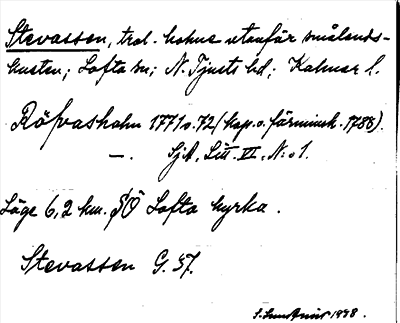 Stevassen, trol. holme utanför smålands-
kusten; Lofta sn; N. Tjusts hd; Kalmar l.
Röfvasholm 1771 o. 72 (kap. o. färminsk. 1788).
—. SjA, Litt. VI, N:o 1.
Läge 6,2 km. SÖ Lofta kyrka.
Stevassen G. 57.
1938.